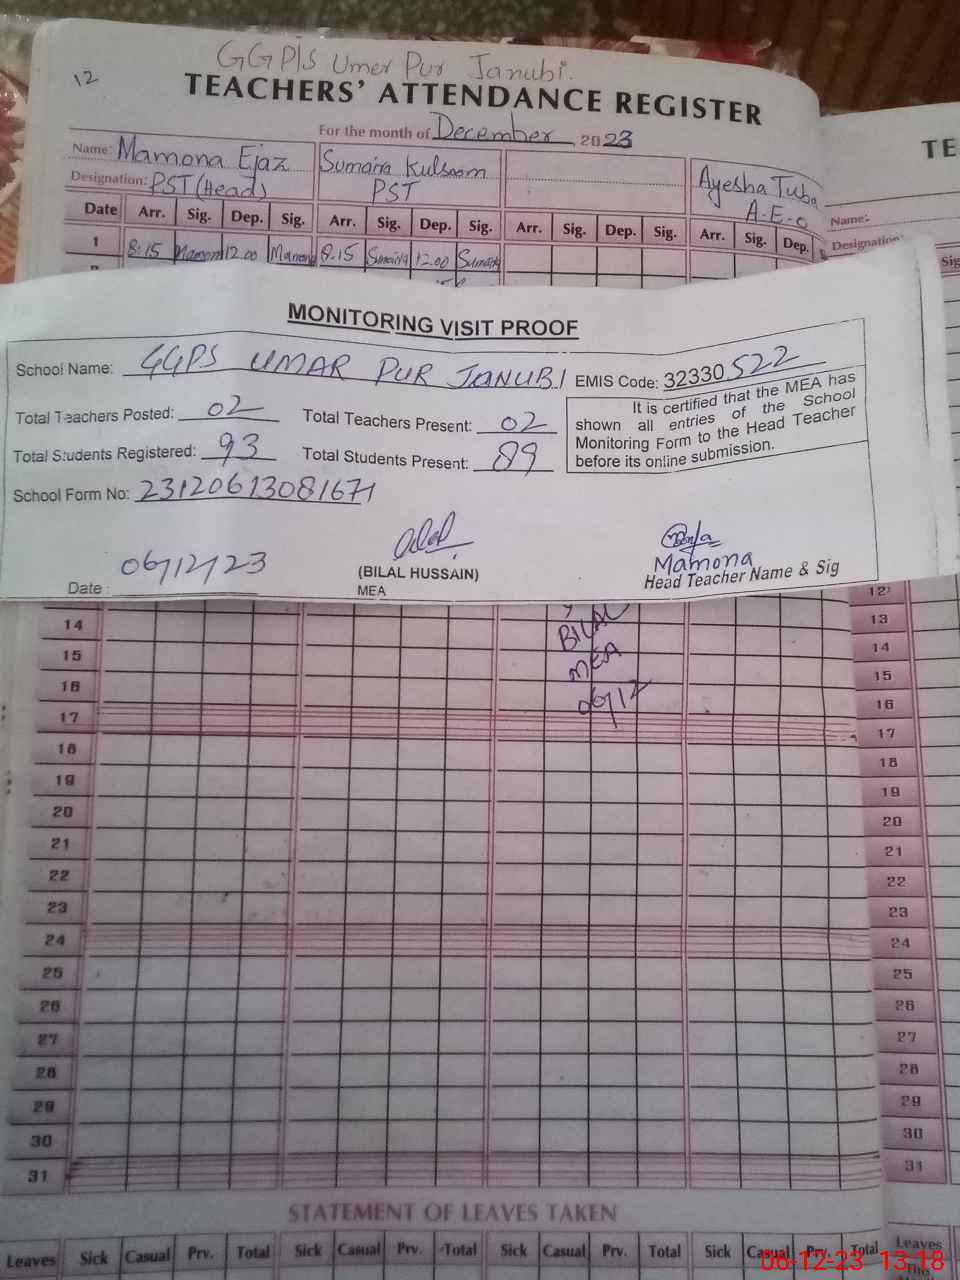 12
GGP/S Umer Pur Janubi.
TEACHERS' ATTENDANCE REGISTER
For the month of December 2023
Name: Mamona Ejaz Sumaira Kulsoom Ayesha Tuba
Designation: PST (Head) PST A.E.O
Date Arr. Sig. Dep. Sig. Arr. Sig. Dep. Sig. Arr. Sig. Dep. Sig. Arr. Sig. Dep.
1 8:15 Mamona 12.00 Mamona 8.15 Sumaira 12.00 Sumaira
TE
Name:
Designation:
Sig
MONITORING VISIT PROOF
School Name: GGPS UMAR PUR JANUBI EMIS Code: 32330522
Total Teachers Posted: 02 Total Teachers Present: 02
Total Students Registered: 93 Total Students Present: 89
School Form No: 23120613081671
It is certified that the MEA has
shown all entries of the School
Monitoring Form to the Head Teacher
before its online submission.
Date: 06/12/23
(BILAL HUSSAIN)
MEA
Mamona
Head Teacher Name & Sig
12
14 13
15 14
16 15
16
17 17
18 18
19 19
20 20
21 21
22 22
23 23
24 24
25 25
26 26
27 27
28 28
29 29
30 30
31 31
BILAL
MEA
06/12
STATEMENT OF LEAVES TAKEN
Leaves Sick Casual Prv. Total Sick Casual Prv. Total Sick Casual Prv. Total Sick Casual Prv. Total Leaves
06-12-23 13:18